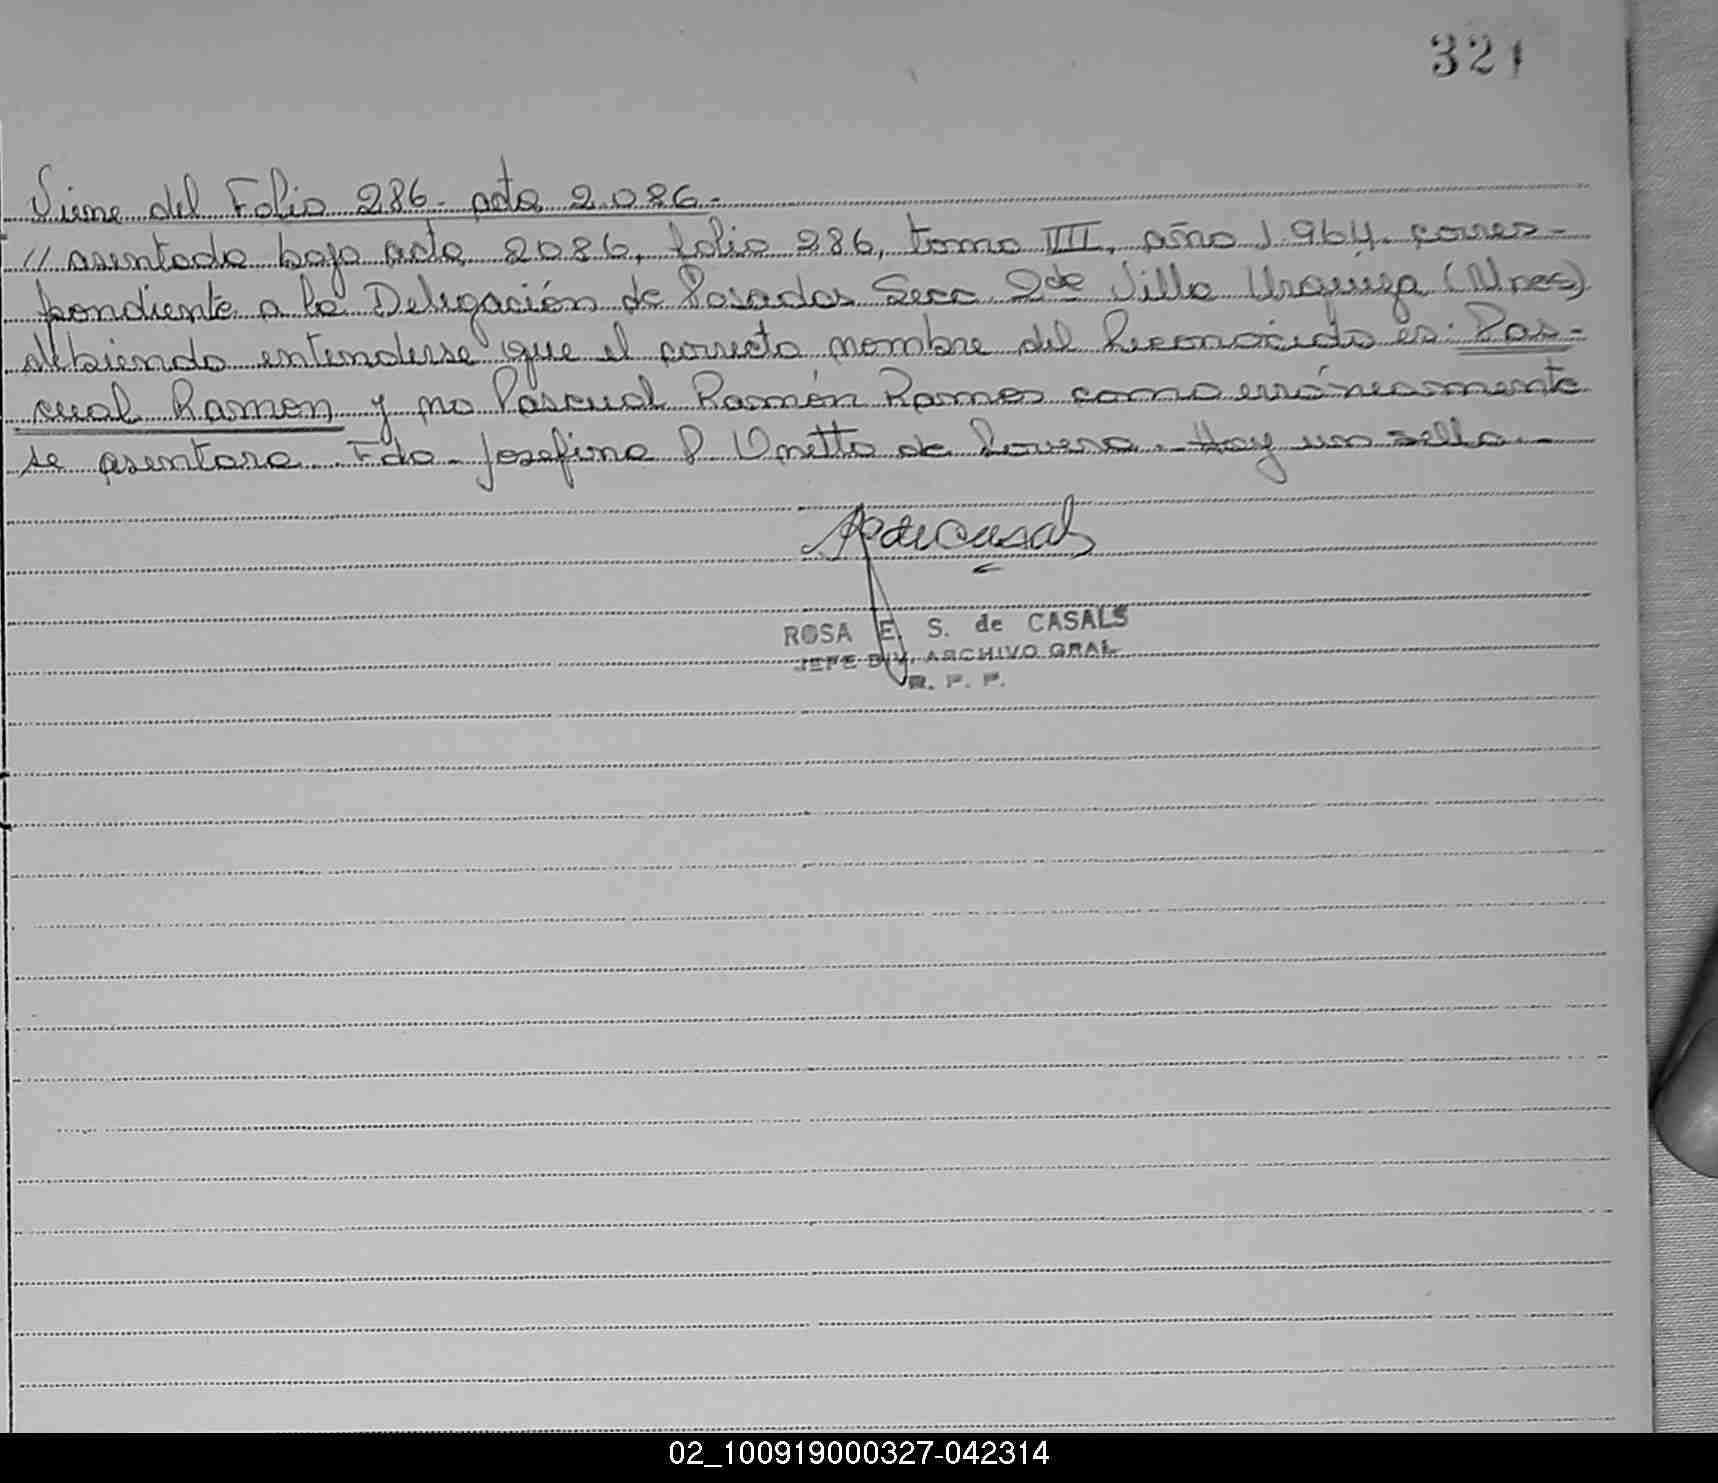 321
Viene del Folio 286 - acta 2.086 -
// asentada bajo acta 2086, folio 286, tomo IIII, año 1.964. corres-
pondiente a la Delegación de Posadas Secc 2da Villa Urquiza (Mnes)
debiendo entenderse que el correcto nombre del Reconocido es: Pas-
cual Ramon y no Pascual Ramón Ramos como erróneamente
se asentara. Fdo. Josefina P. de - Hay un sello -
ROSA E. S. de CASALS
JEFE DIV. ARCHIVO GRAL
R. P. P.
02_100919000327-042314